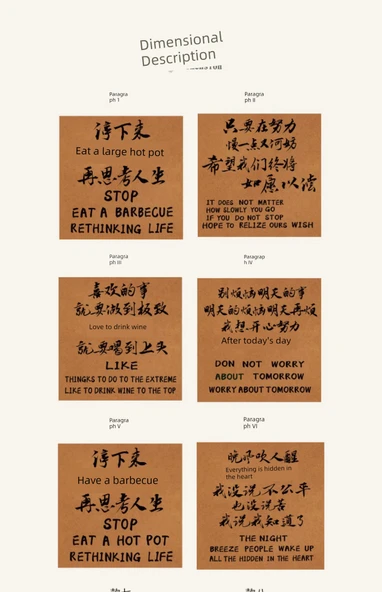 Dimensional
Description
Paragra
ph 1
Paragra
ph II
停下来
Eat a large hot pot
再思考人生
STOP
EAT A BARBECUE
RETHINKING LIFE
只要在努力
慢一点又何妨
希望我们终将
如愿以偿
IT DOES NOT MATTER
HOW SLOWLY YOU GO
IF YOU DO NOT STOP
HOPE TO RELIZE OURS WISH
Paragra
ph III
Paragrap
h IV
喜欢的事
就要做到极致
Love to drink wine
就要喝到上头
LIKE
THINGKS TO DO TO THE EXTREME
LIKE TO DRINK WINE TO THE TOP
别烦恼明天的事
明天的烦恼明天再烦
我想开心努力
After today's day
DON NOT WORRY
ABOUT TOMORROW
WORRY ABOUT TOMORROW
Paragra
ph V
Paragra
ph VI
停下来
Have a barbecue
再思考人生
STOP
EAT A HOT POT
RETHINKING LIFE
晚风吹人醒
Everything is hidden in
the heart
我没说不公平
也没说苦
我说我知道了
THE NIGHT
BREEZE PEOPLE WAKE UP
ALL THE HIDDEN IN THE HEART